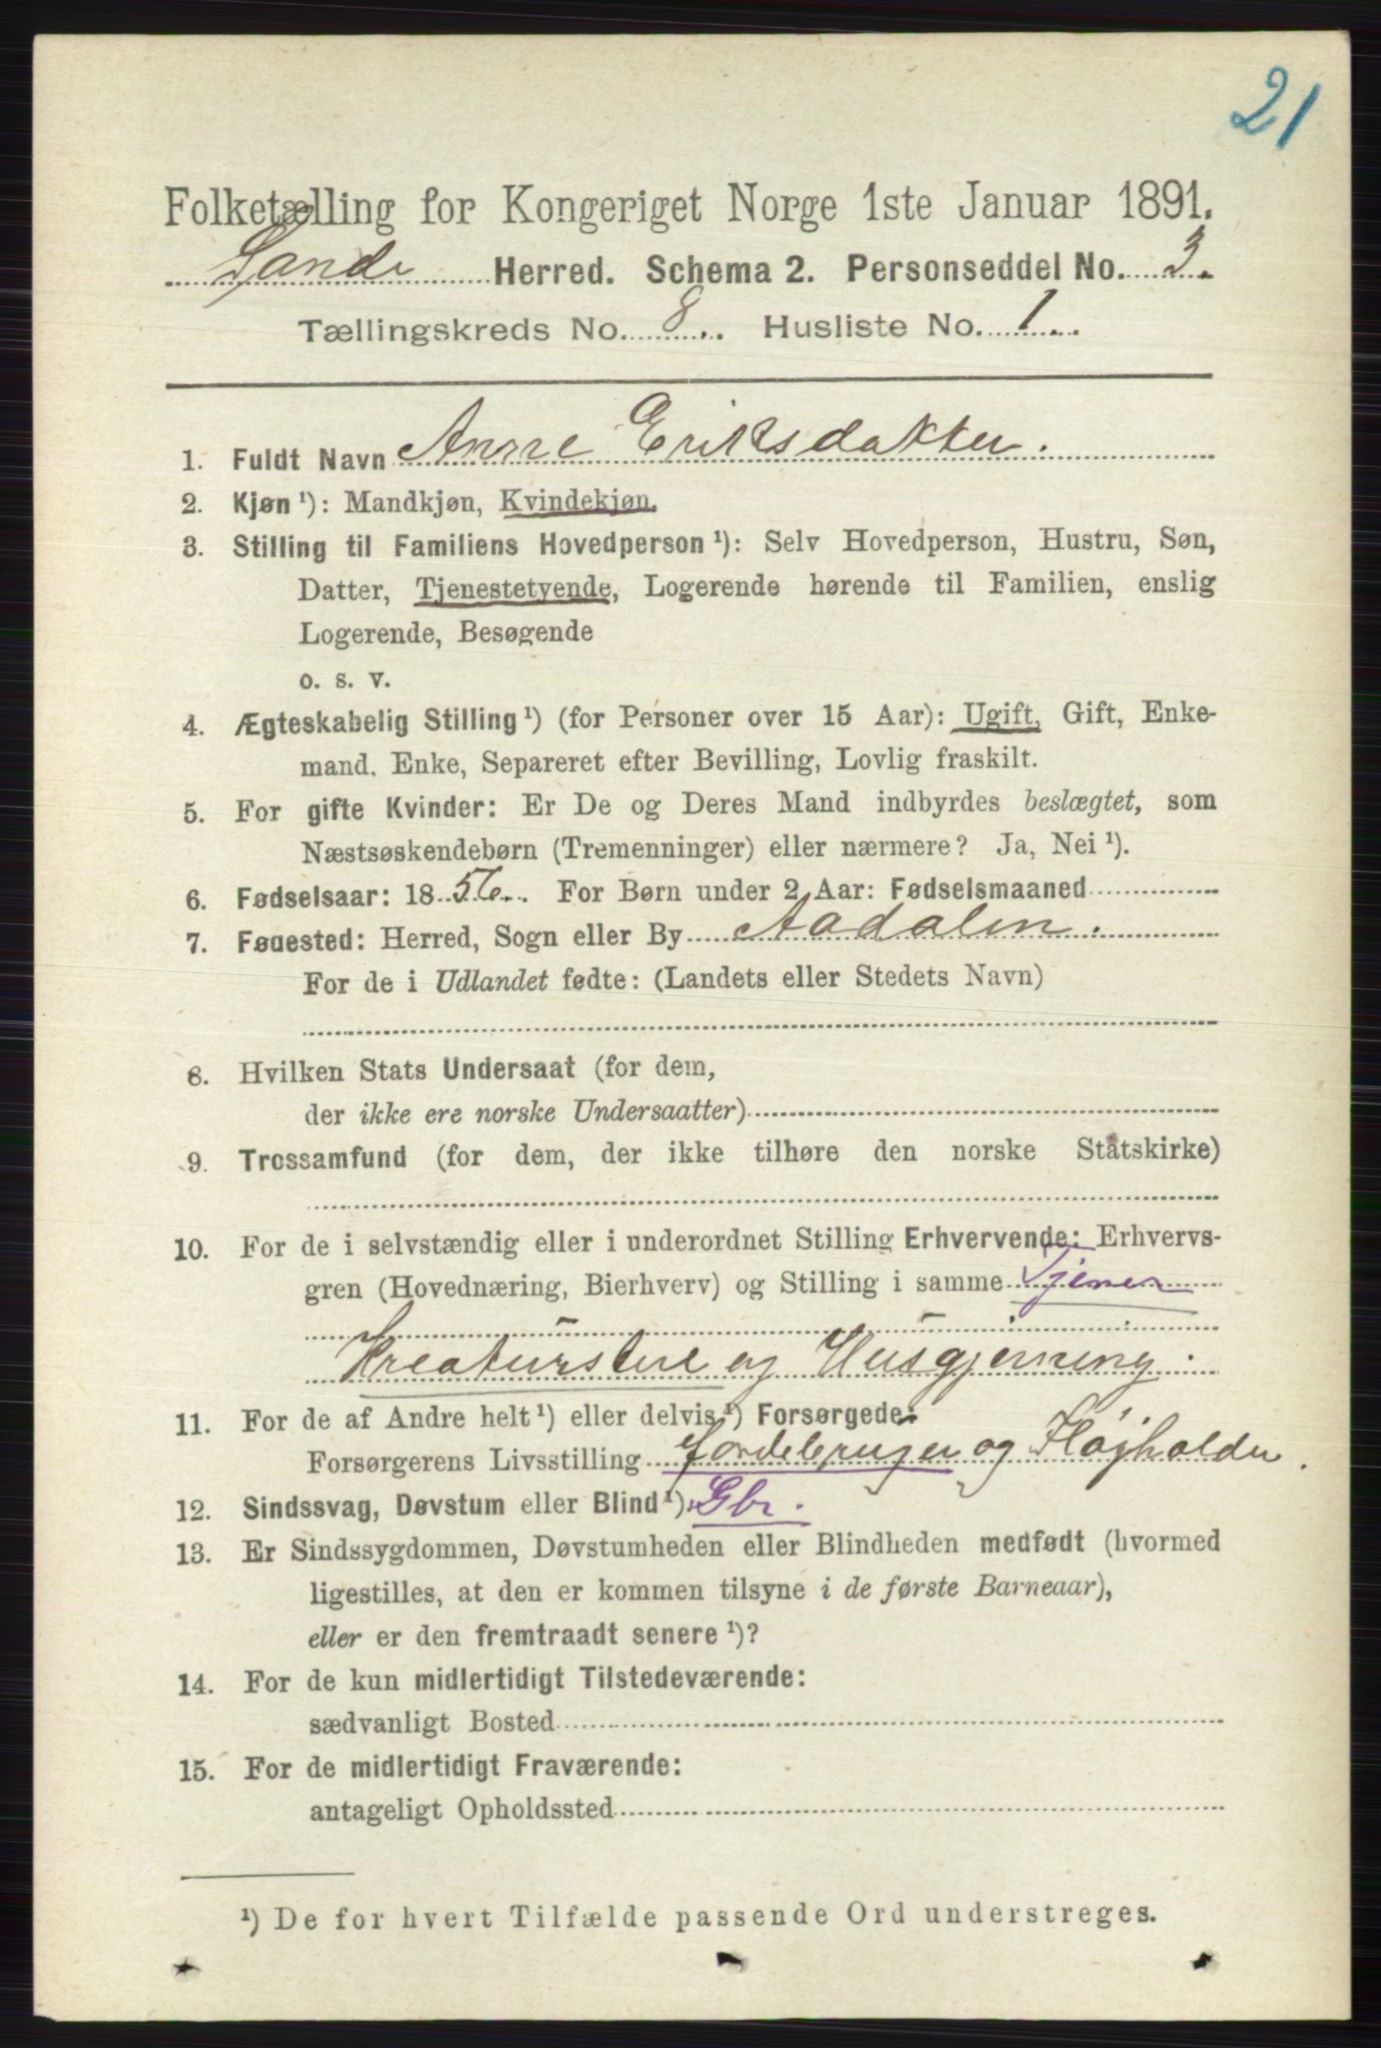 21
Folketælling for Kongeriget Norge 1ste Januar 1891.
Sande Herred. Schema 2. Personseddel No. 3.
Tællingskreds No. 8. Husliste No. 1.
1. Fuldt Navn Anne Eriksdatter.
2. Kjøn ¹): Mandkjøn, Kvindekjøn.
3. Stilling til Familiens Hovedperson ¹): Selv Hovedperson, Hustru, Søn,
Datter, Tjenestetyende, Logerende hørende til Familien, enslig
Logerende, Besøgende
o. s. v.
4. Ægteskabelig Stilling ¹) (for Personer over 15 Aar): Ugift, Gift, Enke-
mand, Enke, Separeret efter Bevilling, Lovlig fraskilt.
5. For gifte Kvinder: Er De og Deres Mand indbyrdes beslægtet, som
Næstsøskendebørn (Tremenninger) eller nærmere? Ja, Nei ¹).
6. Fødselsaar: 1856. For Børn under 2 Aar: Fødselsmaaned
7. Fødested: Herred, Sogn eller By Aadalen.
For de i Udlandet fødte: (Landets eller Stedets Navn)
8. Hvilken Stats Undersaat (for dem,
der ikke ere norske Undersaatter)
9. Trossamfund (for dem, der ikke tilhøre den norske Statskirke)
10. For de i selvstændig eller i underordnet Stilling Erhvervende: Erhvervs-
gren (Hovednæring, Bierhverv) og Stilling i samme Tjener
Kreaturstel og Husgjerning.
11. For de af Andre helt ¹) eller delvis ¹) Forsørgede:
Forsørgerens Livsstilling Jordebruger og Fløjholder.
12. Sindssvag, Døvstum eller Blind ¹). Gbr.
13. Er Sindssygdommen, Døvstumheden eller Blindheden medfødt (hvormed
ligestilles, at den er kommen tilsyne i de første Barneaar),
eller er den fremtraadt senere ¹)?
14. For de kun midlertidigt Tilstedeværende:
sædvanligt Bosted
15. For de midlertidigt Fraværende:
antageligt Opholdssted
¹) De for hvert Tilfælde passende Ord understreges.